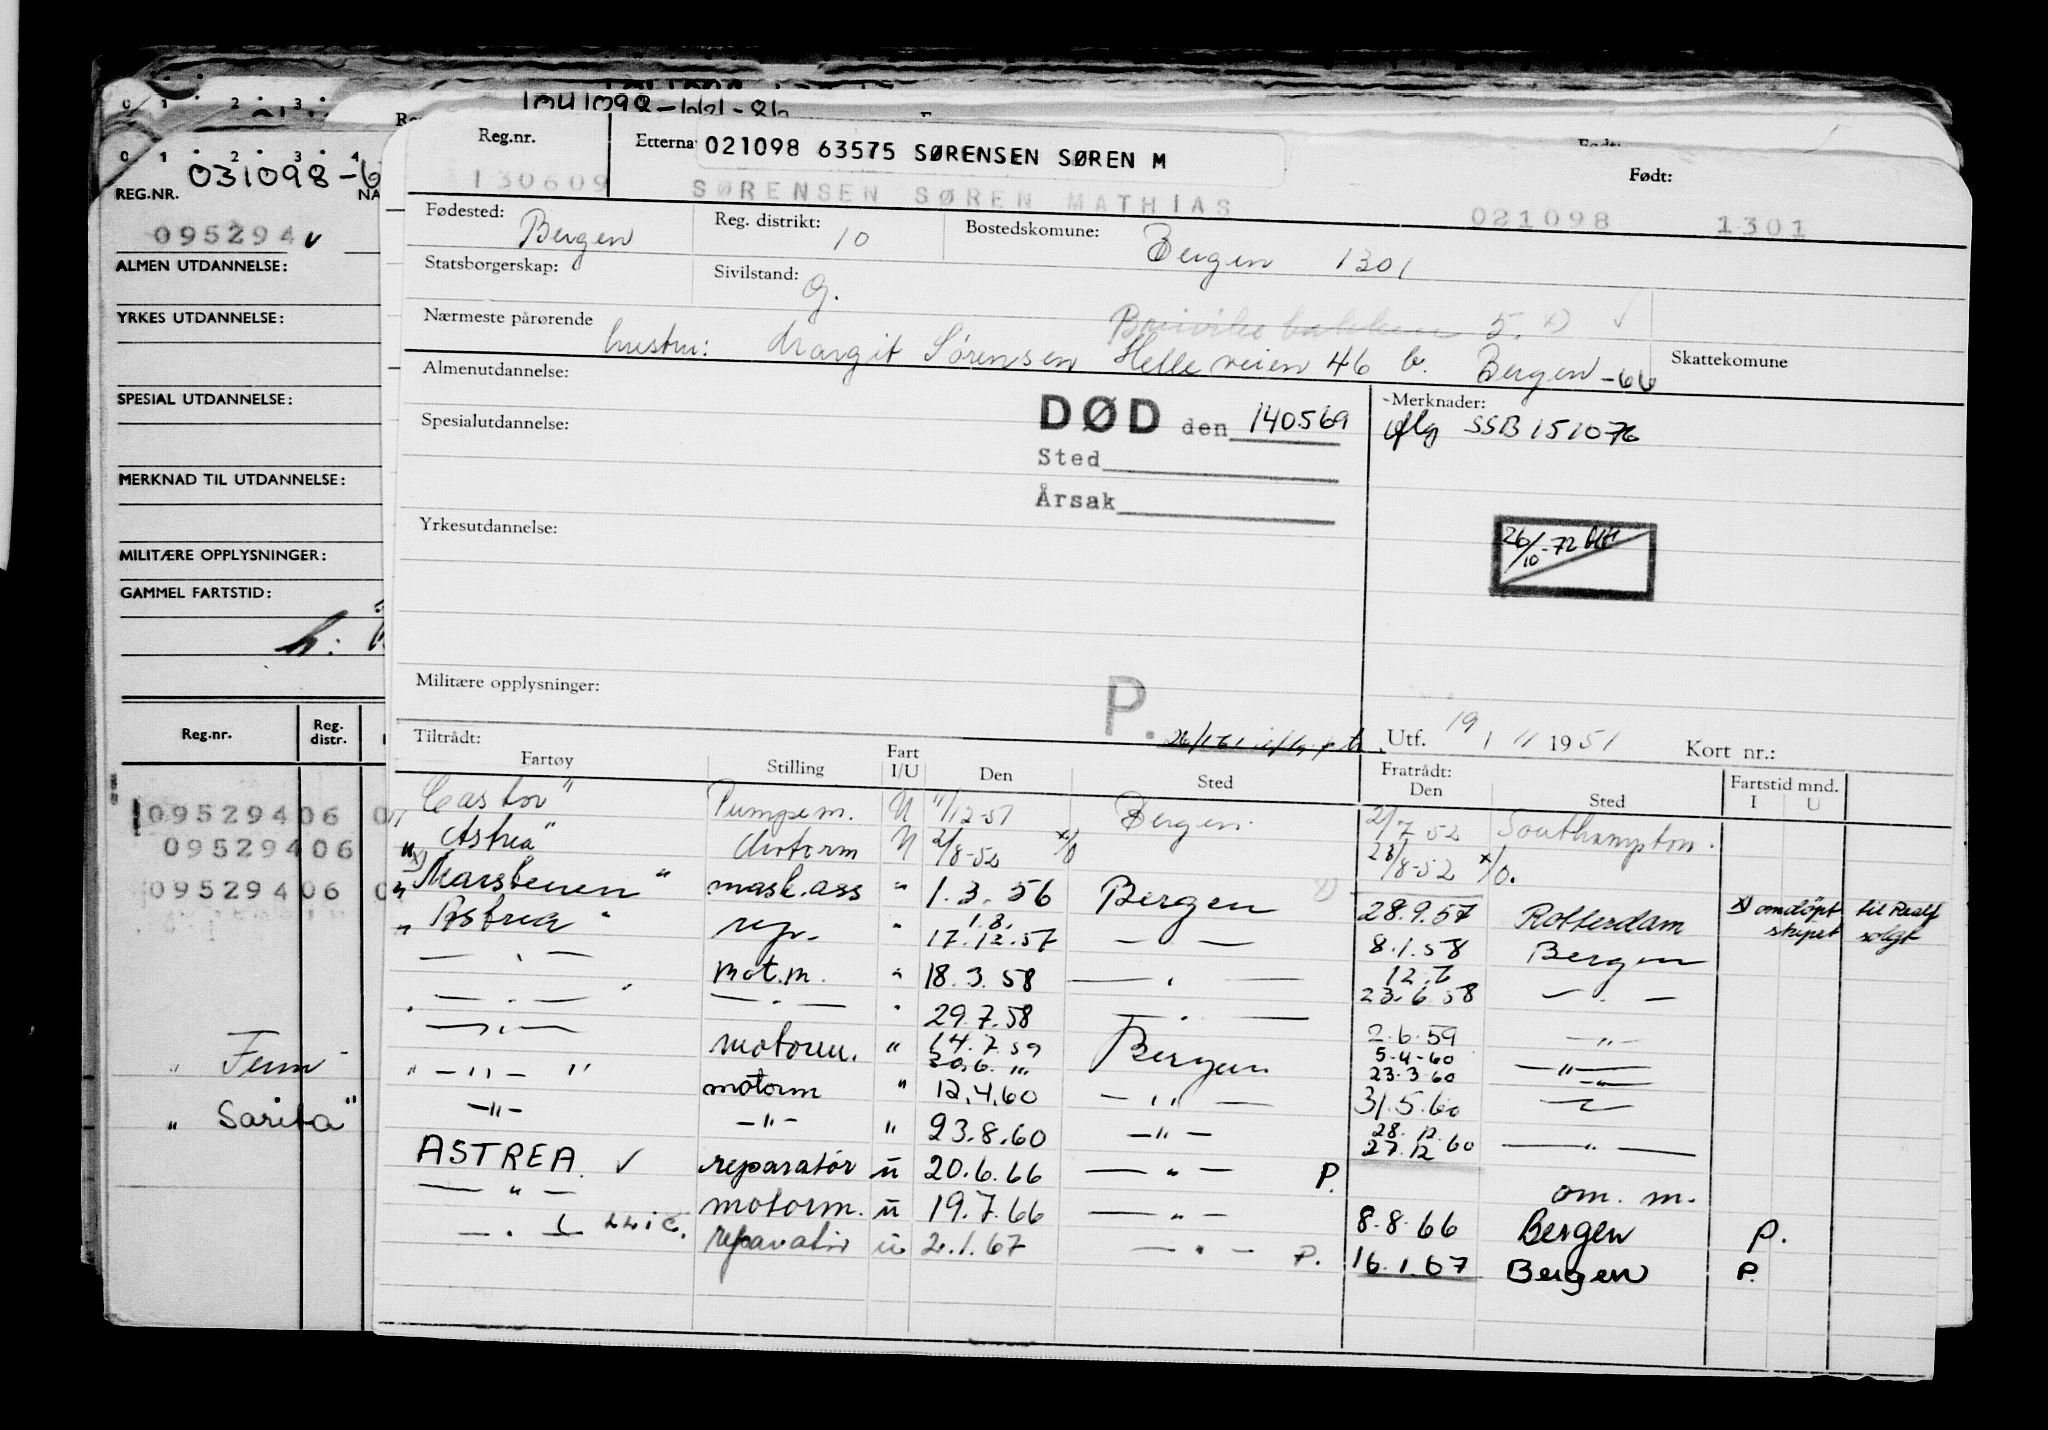 0 1 2 3
0 1 2 3 4
REG.NR. 031098-6
NA
095294
ALMEN UTDANNELSE:
YRKES UTDANNELSE:
SPESIAL UTDANNELSE:
MERKNAD TIL UTDANNELSE:
MILITÆRE OPPLYSNINGER:
GAMMEL FARTSTID:
h:
Reg.nr. Reg. distr.
09529406
09529406
09529406
" Fern
" Sarita"
Reg.nr. Etterna 021098 63575 SØRENSEN SØREN M Født:
130609 SØRENSEN SØREN MATHIAS 021098 1301
Fødested: Bergen Reg. distrikt: 10 Bostedskomune: Bergen 1301
Statsborgerskap: Sivilstand: g.
5. x)
Nærmeste pårørende hustru: Margit Sørensen Helleveien 46 b. Bergen -66 Skattekomune
Almenutdannelse:
DØD den 140569 Merknader:
Spesialutdannelse: iflg SSB 151076
Sted
Årsak
Yrkesutdannelse: 26/10-72
Militære opplysninger: P.
Tiltrådt: Utf. 19 / 11 1951 Kort nr.:
Fartøy Stilling Fart I/U Den Sted Fratrådt: Den Sted Fartstid mnd. I U
"Castor" Pumpem. U "/12-51 Bergen 2/7 52 Southampton.
"Astrea" Motorm U 2/8-52 x/0 28/8-52 x/0.
x) "Marsteinen" mask.ass " 1.3.56 Bergen 28.9.57 Rotterdam x) omdöpt til Realf
skipet solgt
" Astrea " rep. " 1.8. 17.12.57 — — 8.1.58 Bergen
— " — mot.m. " 18.3.58 — " — 12.6 23.6.58 — " —
— " — — " — " 29.7.58 — " — 2.6.59 — " —
— " — motorm. " 14.7.59 30.6. " Bergen 5-4-60 23.3.60 — " —
" — " — " motorm " 12.4.60 — " — 31.5.60 — " —
— " — — " — " 23.8.60 — " — 28.12. 27.12 60 — " —
ASTREA ✓ reparatør u 20.6.66 — " — P. om. m.
— " — motorm. u 19.7.66 — " — 8.8.66 Bergen P.
— " — LLIC. reparatør u 2.1.67 — " — P. 16.1.67 Bergen P.